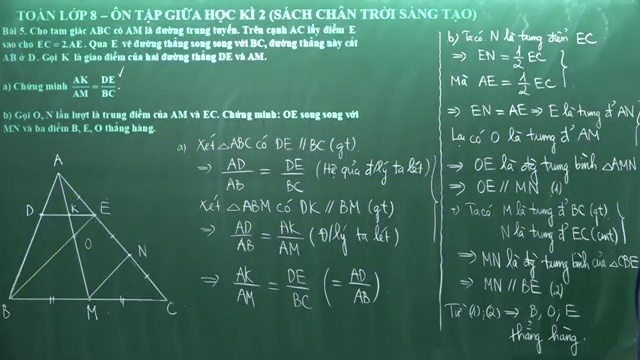 TOÁN LỚP 8 – ÔN TẬP GIỮA HỌC KÌ 2 (SÁCH CHÂN TRỜI SÁNG TẠO)
Bài 5. Cho tam giác ABC có AM là đường trung tuyến. Trên cạnh AC lấy điểm E
sao cho EC = 2.AE . Qua E vẽ đường thẳng song song với BC, đường thẳng này cắt
AB ở D . Gọi K là giao điểm của hai đường thẳng DE và AM.
a) Chứng minh AK/AM = DE/BC.
b) Gọi O, N lần lượt là trung điểm của AM và EC. Chứng minh: OE song song với
MN và ba điểm B, E, O thẳng hàng.
A
D
K
E
O
N
B
M
C
a) Xét △ABC có DE // BC (gt)
⇒ AD/AB = DE/BC (Hệ quả đ/lý ta lét)
Xét △ABM có DK // BM (gt)
⇒ AD/AB = AK/AM (Đ/lý ta lét)
⇒ AK/AM = DE/BC (= AD/AB)
b) Ta có N là trung điểm EC
⇒ EN = 1/2 EC
Mà AE = 1/2 EC
⇒ EN = AE ⇒ E là trung đ' AN
Lại có O là trung đ' AM
⇒ OE là đg trung bình △AMN
⇒ OE // MN (1)
+) Ta có M là trung đ' BC (gt)
N là trung đ' EC (cmt)
⇒ MN là đg trung bình của △CBE
⇒ MN // BE (2)
Từ (1); (2) ⇒ B, O, E
thẳng hàng.